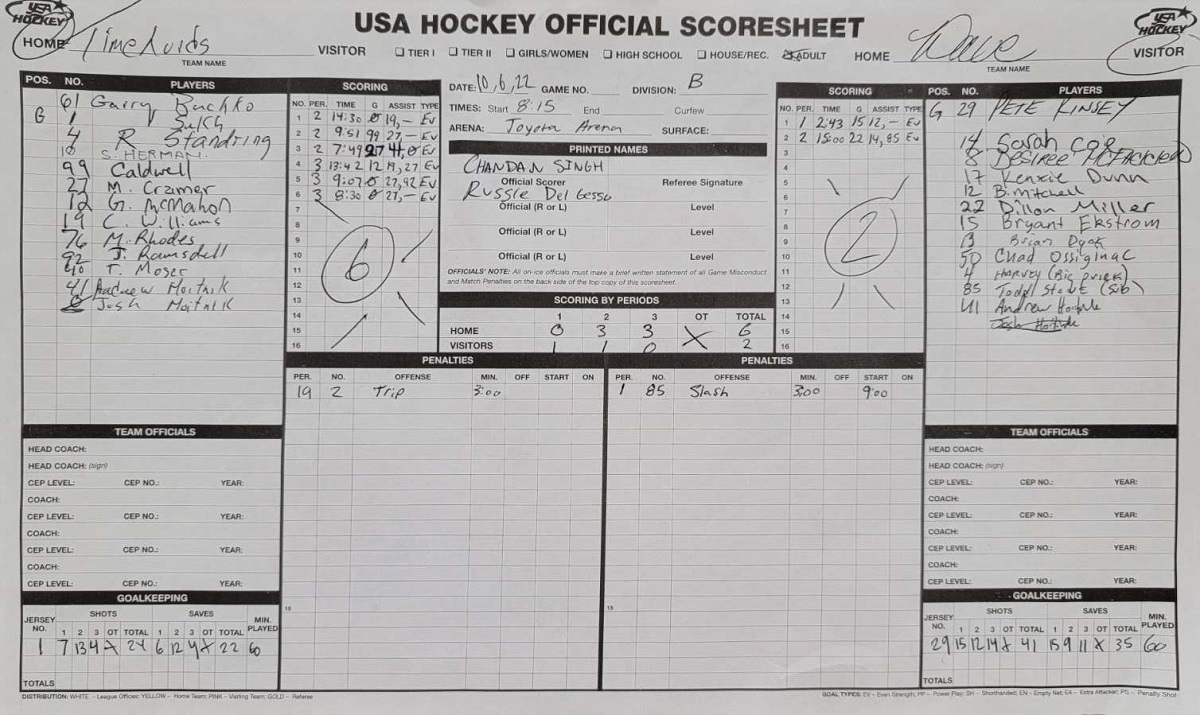 USA HOCKEY OFFICIAL SCORESHEET
USA HOCKEY
HOME Time Lords
TEAM NAME
VISITOR
TIER I TIER II GIRLS/WOMEN HIGH SCHOOL HOUSE/REC. ADULT
HOME Dave
TEAM NAME
USA HOCKEY
VISITOR
POS. NO. PLAYERS
61 Garry Buchko
G 1
4 R Standring
18 S. HERMAN
99 Caldwell
27 M. Cramer
12 G. McMahon
19 C. Williams
76 M. Rhodes
92 J. Ramsdell
40 T. Moser
41 Andrew Moitnik
0 Josh Moitnik
SCORING
NO. PER. TIME G ASSIST TYPE
1 2 14:30 0 19, - EV
2 2 9:51 99 27, - EV
3 2 7:49 27 4, 0 EV
4 3 13:42 12 19, 27 EV
5 3 9:07 0 27, 92 EV
6 3 8:30 0 27, - EV
7
8
9
10
11
12
13
14
15
16
6
DATE: 10,6,22 GAME NO. DIVISION: B
TIMES: Start 8:15 End Curfew
ARENA: Toyota Arena SURFACE:
PRINTED NAMES
CHANDAN SINGH
Official Scorer Referee Signature
Russle Del Gesso
Official (R or L) Level
Official (R or L) Level
Official (R or L) Level
OFFICIALS' NOTE: All on-ice officials must make a brief written statement of all Game Misconduct and Match Penalties on the back side of the top copy of this scoresheet.
SCORING BY PERIODS
1 2 3 OT TOTAL
HOME 0 3 3 X 6
VISITORS 1 1 0 2
SCORING
NO. PER. TIME G ASSIST TYPE
1 1 2:43 15 12, - EV
2 2 15:00 22 14, 85 EV
3
4
5
6
7
8
9
10
11
12
13
14
15
16
2
POS. NO. PLAYERS
G 29 PETE KINSEY
14 Sarah Coie
8 Desiree
17 Kenzie Dunn
12 B. Mitchell
22 Dillon Miller
15 Bryant Ekstrom
13 Brian Dyck
50 Chad Ossignac
4 Harvey
85 Todd Stout (Sub)
41 Andrew
PENALTIES
PER. NO. OFFENSE MIN. OFF START ON
19 2 Trip 3:00
15
PENALTIES
PER. NO. OFFENSE MIN. OFF START ON
1 85 Slash 3:00 9:00
15
TEAM OFFICIALS
HEAD COACH:
HEAD COACH: (sign)
CEP LEVEL: CEP NO.: YEAR:
COACH:
CEP LEVEL: CEP NO.: YEAR:
COACH:
CEP LEVEL: CEP NO.: YEAR:
COACH:
CEP LEVEL: CEP NO.: YEAR:
GOALKEEPING
JERSEY NO. SHOTS SAVES MIN. PLAYED
1 2 3 OT TOTAL 1 2 3 OT TOTAL
1 7 13 4 X 24 6 12 4 X 22 60
TOTALS
TEAM OFFICIALS
HEAD COACH:
HEAD COACH: (sign)
CEP LEVEL: CEP NO.: YEAR:
COACH:
CEP LEVEL: CEP NO.: YEAR:
COACH:
CEP LEVEL: CEP NO.: YEAR:
COACH:
CEP LEVEL: CEP NO.: YEAR:
GOALKEEPING
JERSEY NO. SHOTS SAVES MIN. PLAYED
1 2 3 OT TOTAL 1 2 3 OT TOTAL
29 15 12 14 X 41 15 9 11 X 35 60
TOTALS
DISTRIBUTION: WHITE - League Offices; YELLOW - Home Team; PINK - Visiting Team; GOLD - Referee
GOAL TYPES: EV - Even Strength; PP - Power Play; SH - Shorthanded; EN - Empty Net; EA - Extra Attacker; PS - Penalty Shot